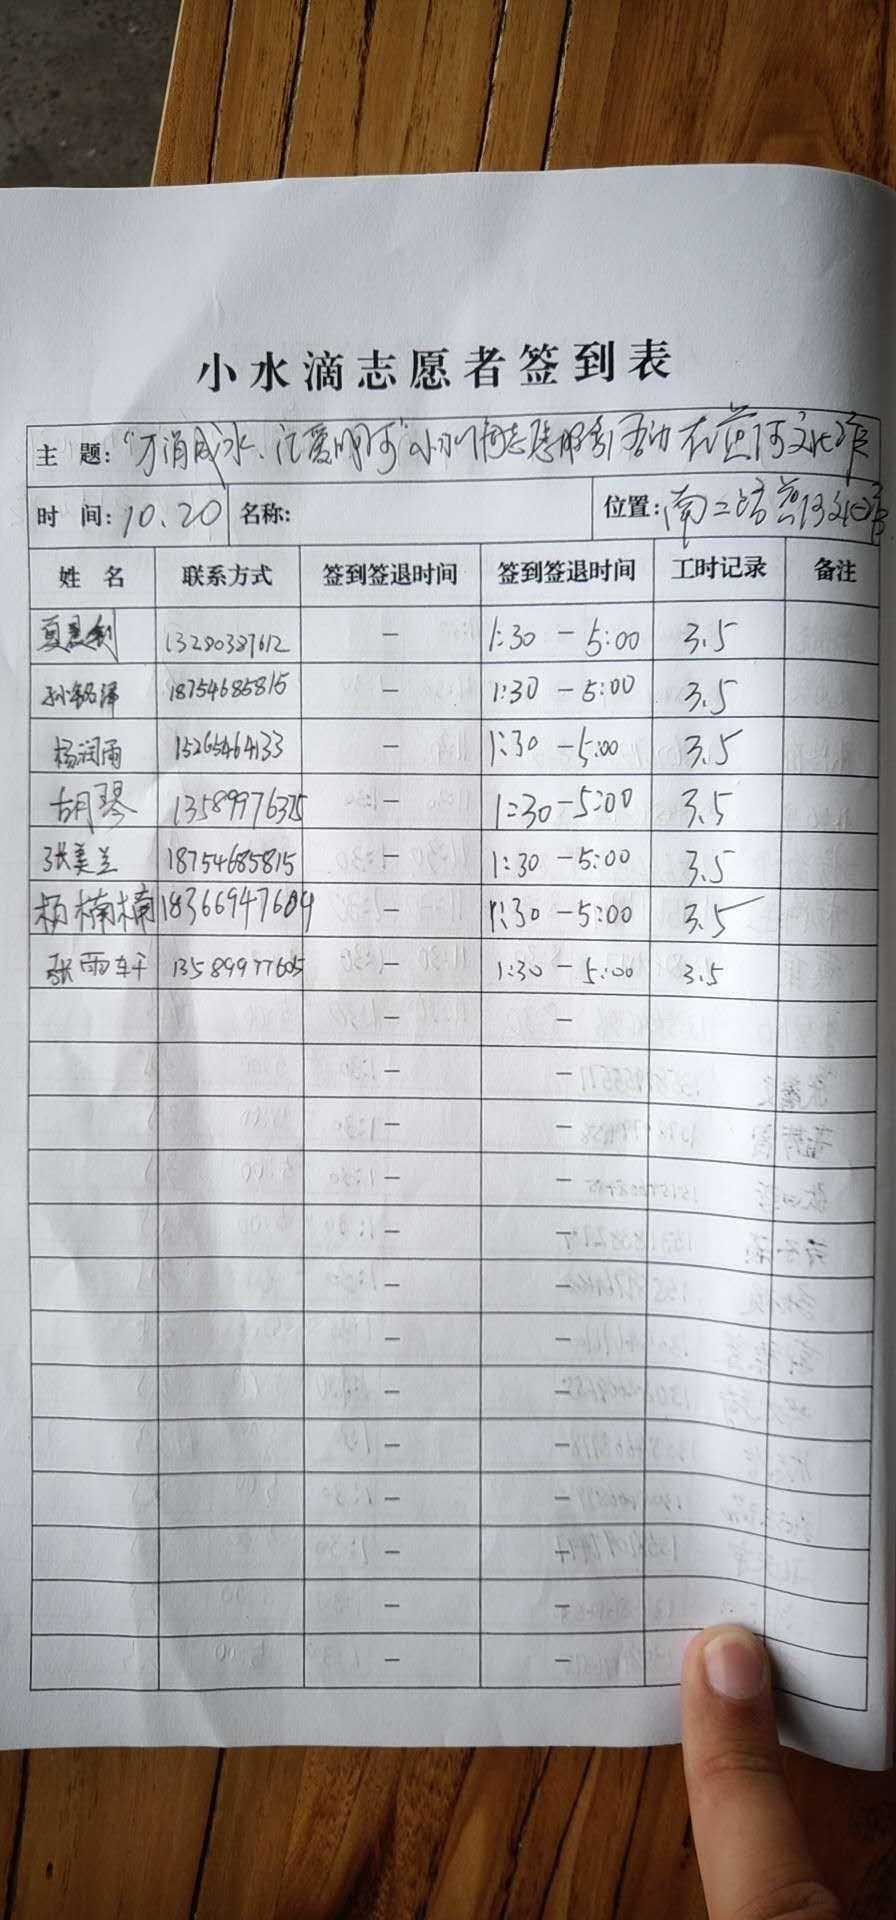 小水滴志愿者签到表
主 题: 小水滴志愿服务活动在黄河文化馆
时 间: 10.20 名称: 位置: 南二路黄河文化馆
姓 名 联系方式 签到签退时间 签到签退时间 工时记录 备注
13280387612 — 1:30 — 5:00 3.5
孙铭泽 18754685815 — 1:30 — 5:00 3.5
杨润雨 15265464133 — 1:30 — 5:00 3.5
胡琴 13589976375 — 1:30 — 5:00 3.5
张美兰 18754685815 — 1:30 — 5:00 3.5
杨楠楠 18366947604 — 1:30 — 5:00 3.5
张雨轩 13589977605 — 1:30 — 5:00 3.5